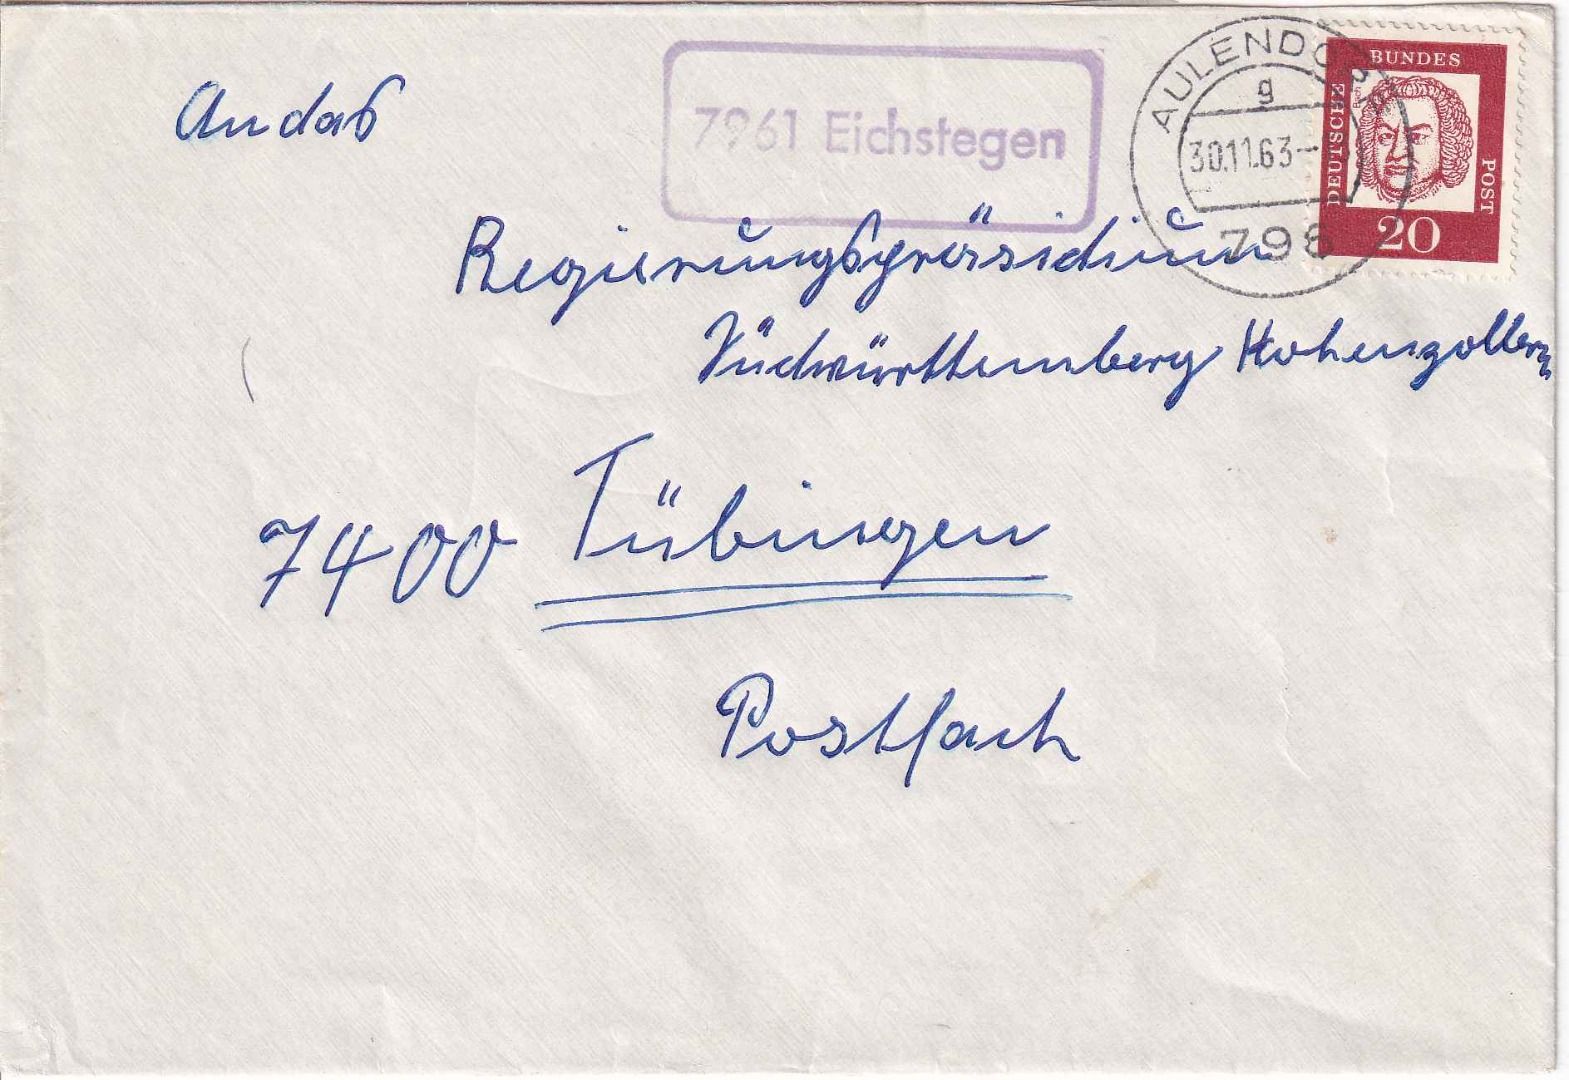 An das
7961 Eichstegen
AULENDORF
g
30.11.63
798
DEUTSCHE BUNDES POST
20
Regierungspräsidium
Südwürttemberg Hohenzollern
7400 Tübingen
Postfach